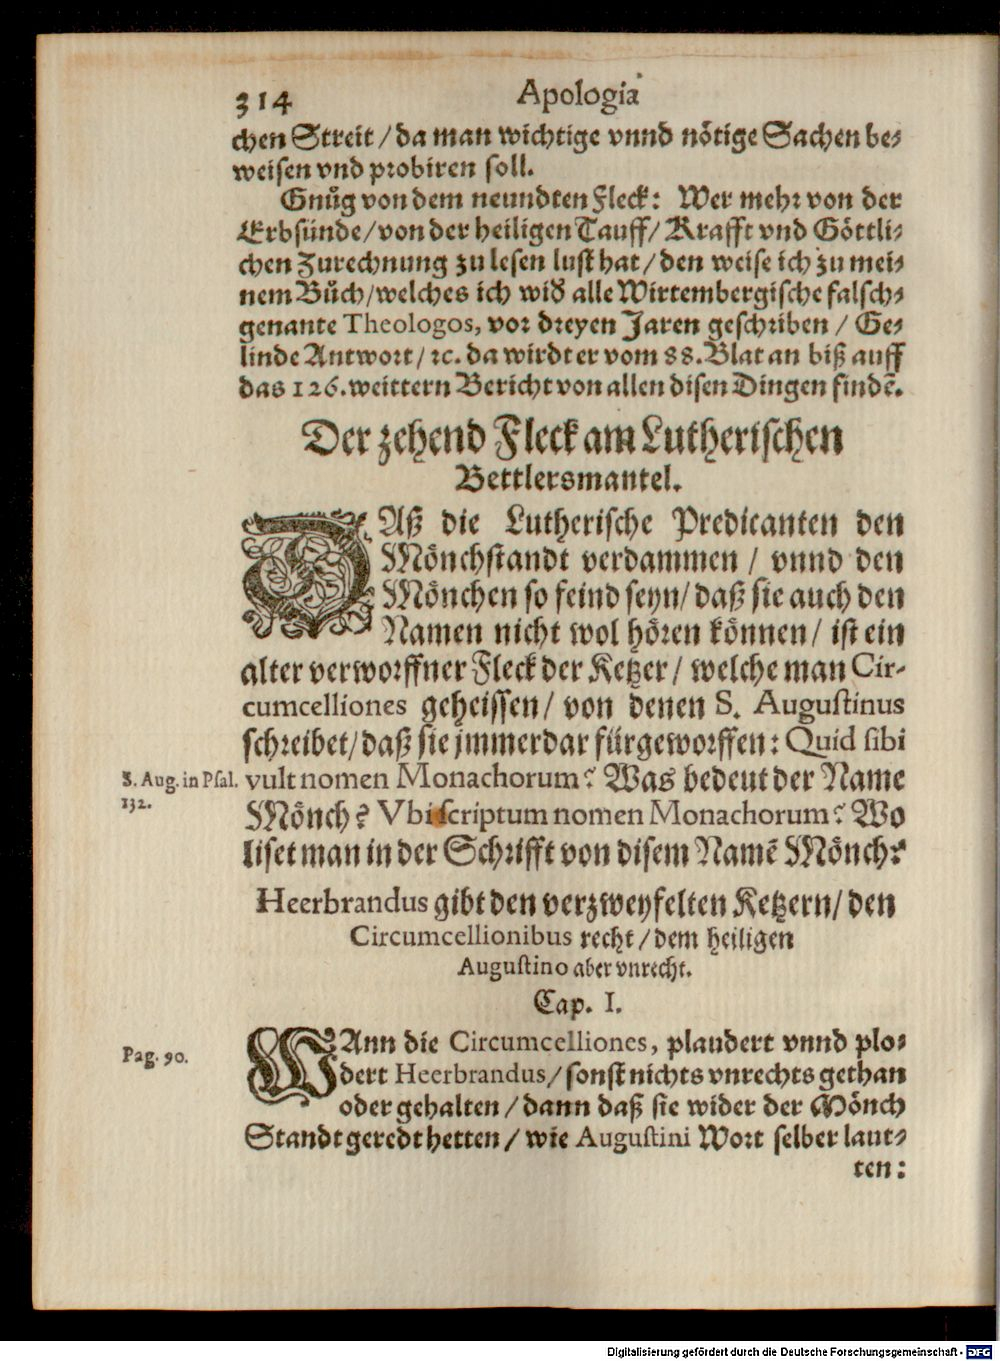 314 Apologia
chen Streit / da man wichtige vnnd nötige Sachen be-
weisen vnd probiren soll.
Gnůg von dem neundten Fleck: Wer mehr von der
Erbsünde / von der heiligen Tauff / Krafft vnd Göttli-
chen Zurechnung zu lesen lust hat / den weise ich zu mei-
nem Bůch / welches ich wid̕ alle Wirtembergische falsch-
genante Theologos, vor dreyen Jaren geschriben / Ge-
linde Antwort / ꝛc. da wirdt er vom 88. Blat an biß auff
das 126. weittern Bericht von allen disen Dingen findē.
Der zehend Fleck am Lutherischen
Bettlersmantel.
DAß die Lutherische Predicanten den
Mönchstandt verdammen / vnnd den
Mönchen so feind seyn / daß sie auch den
Namen nicht wol hören können / ist ein
alter verworffner Fleck der Ketzer / welche man Cir-
cumcelliones geheissen / von denen S. Augustinus
schreibet / daß sie jmmerdar fürgeworffen: Quid sibi
S. Aug. in Psal. vult nomen Monachorum? Was bedeut der Name
132. Mönch? Vbi scriptum nomen Monachorum? Wo
liset man in der Schrifft von disem Namē Mönch?
Heerbrandus gibt den verzweyfelten Ketzern / den
Circumcellionibus recht / dem heiligen
Augustino aber vnrecht.
Cap. I.
WAnn die Circumcelliones, plaudert vnnd plo-
Pag. 90. dert Heerbrandus / sonst nichts vnrechts gethan
oder gehalten / dann daß sie wider der Mönch
Standt geredt hetten / wie Augustini Wort selber laut-
ten:
Digitalisierung gefördert durch die Deutsche Forschungsgemeinschaft - DFG